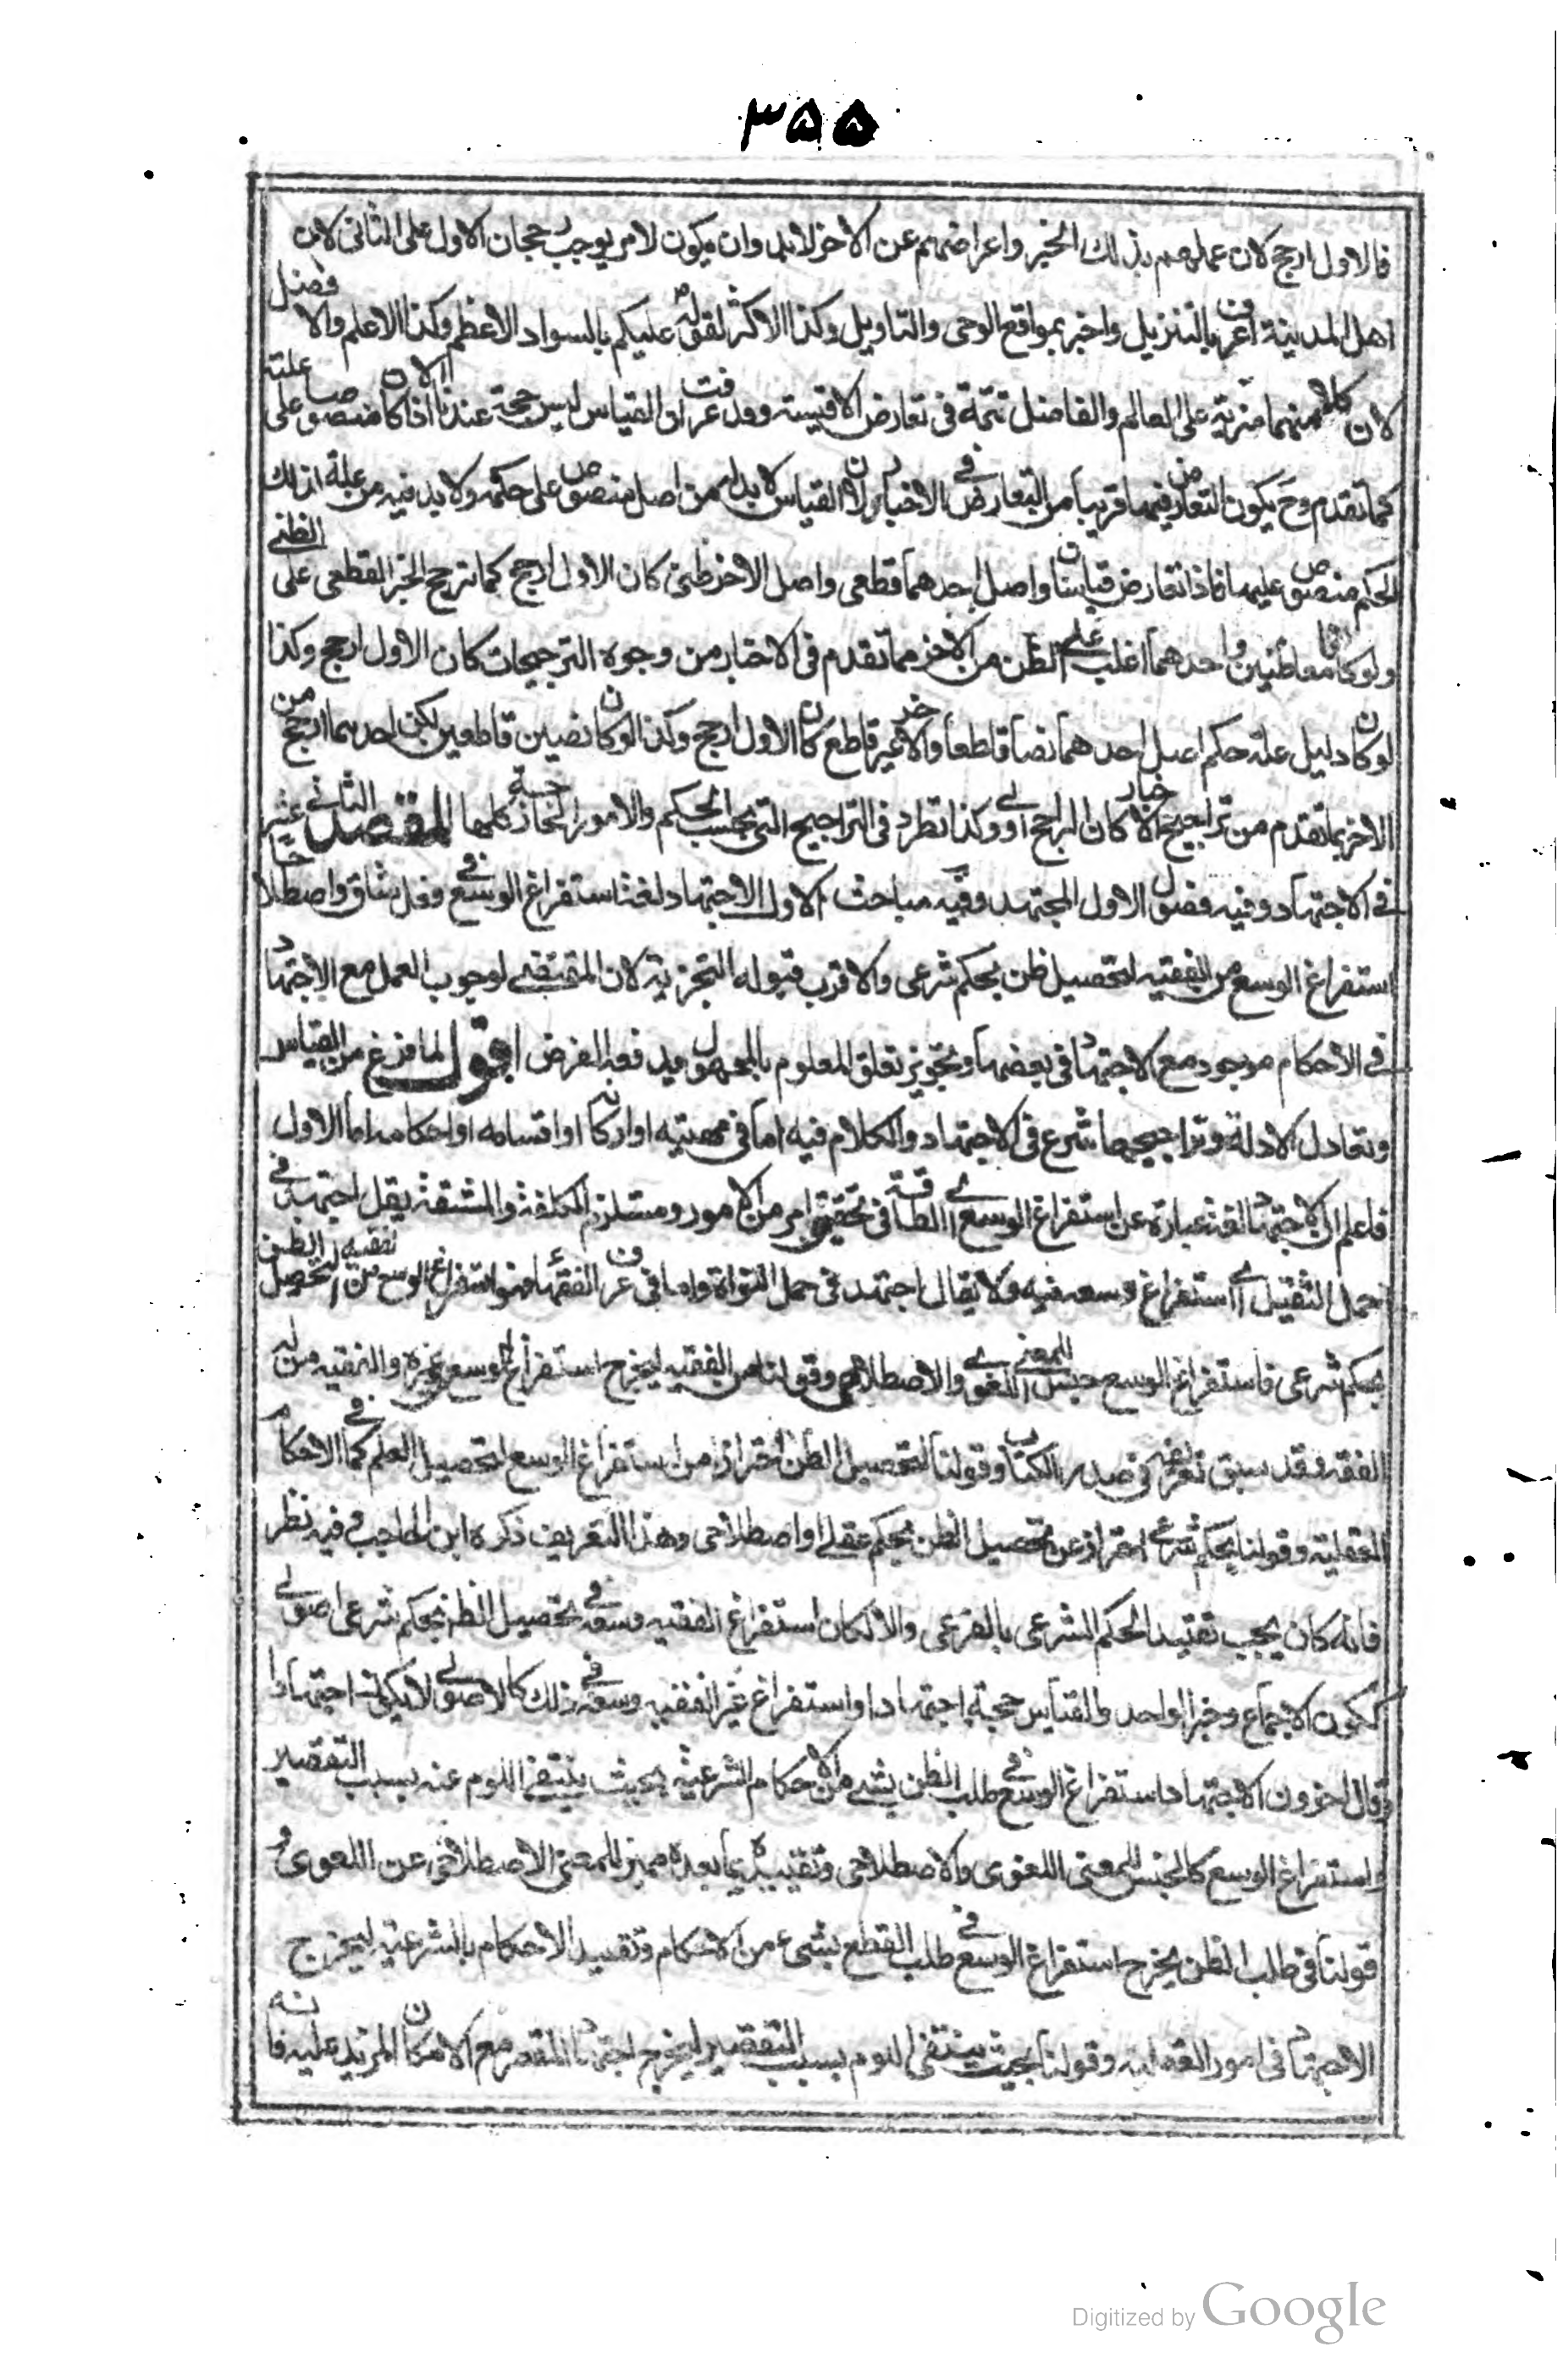 ٣٥٥
فالاول ارجح لان عملهم بذلك الخبر واعراضهم عن الاخر لابد وان يكون لامر يوجب رجحان الاول على الثانى لان
اهل المدينة اعرف بالتنزيل واخبر بمواقع الوحى والتاويل وكذا الاكثر لقوله عليكم بالسواد الاعظم وكذا الاعلم والافضل
لان كلا منهما مزية على العالم والفاضل تتمة فى تعارض الاقيسة وقد عرفت ان القياس ليس حجة عندنا الا اذا كان منصوصا على علته
كما تقدم وح يكون التعارض فيها قريبا من التعارض فى الاخبار لان القياس لابد له من اصل منصوص على حكمه ولا بد فيه من علة لذلك
الحكم منصوص عليها فاذا تعارض قياسان واصل احدهما قطعى واصل الاخر ظنى كان الاول ارجح كما ترجح الخبر القطعى على الظنى
ولو كانا معا ظنيين واحدهما اغلب على الظن من الاخر مما تقدم فى الاخبار من وجوه الترجيحات كان الاول ارجح وكذا
لو كان دليل علة حكم اصل احدهما نصا قاطعا والاخر غير قاطع كان الاول ارجح وكذا لو كانا نصين قاطعين لكن احدهما ارجح من
الاخر بما تقدم من تراجيح الاخبار كان الراجح اولى وكذا تطرد فى التراجيح التى بحسب الحكم والامور الخارجة كلها المقصد الثانى عشر
فى الاجتهاد وفيه فصول الاول المجتهد وفيه مباحث الاول الاجتهاد لغة استفراغ الوسع فى فعل شاق واصطلاحا
استفراغ الوسع من الفقيه لتحصيل ظن بحكم شرعى والاقرب قبوله التجزية لان المقتضى لوجوب العمل مع الاجتهاد
فى الاحكام موجود مع الاجتهاد فى بعضها وتجويز تعلق المعلوم بالمجهول يدفعه الفرض اقول لما فرغ من القياس
وتعادل الادلة وتراجيحها شرع فى الاجتهاد والكلام فيه اما فى مهيته او اركانه او اقسامه او احكامه اما الاول
فاعلم ان الاجتهاد لغة عبارة عن استفراغ الوسع اى الطاقة فى تحقيق امر من الامور ومستلزم للكلفة والمشقة يقل اجتهد فى
حمل الثقيل اى استفراغ وسعه فيه ولا يقال اجتهد فى حمل النواة واما فى عرف الفقهاء فهو استفراغ الوسع من الفقيه لتحصيل الظن
بحكم شرعى فاستفراغ الوسع جنس للمعنى اللغوى والاصطلاحى وقولنا من الفقيه ليخرج استفراغ الوسع من غيره والفقيه من له
الفقه وقد سبق تعريفه فى صدر الكتاب وقولنا لتحصيل الظن احتراز من استفراغ الوسع لتحصيل العلم كما فى الاحكام
العقلية وقولنا بحكم شرعى احتراز عن تحصيل الظن بحكم عقلى او اصطلاحى وهذا التعريف ذكره ابن الحاجب وفيه نظر
فانه كان يجب تقييد الحكم الشرعى بالفرعى والا لكان استفراغ الفقيه وسعه فى تحصيل الظن بحكم شرعى اصولى
ككون الاجماع وخبر الواحد والقياس حجة اجتهادا واستفراغ غير الفقيه وسعه فى ذلك كالاصولى لا يكون اجتهادا
وقال اخرون الاجتهاد استفراغ الوسع فى طلب الظن بشئ من الاحكام الشرعية بحيث ينتفى اللوم عنه بسبب التقصير
واستفراغ الوسع كالجنس للمعنى اللغوى والاصطلاحى وتقييده بما بعده مميز للمعنى الاصطلاحى عن اللغوى و
قولنا فى طلب الظن يخرج استفراغ الوسع فى طلب القطع بشئ من الاحكام وتقييد الاحكام بالشرعية ليخرج
الاجتهاد فى امور العقلية وقولنا بحيث ينتفى اللوم بسبب التقصير ليخرج اجتهاد المقصر مع الامكان المزيد عليه فانه
Digitized by Google